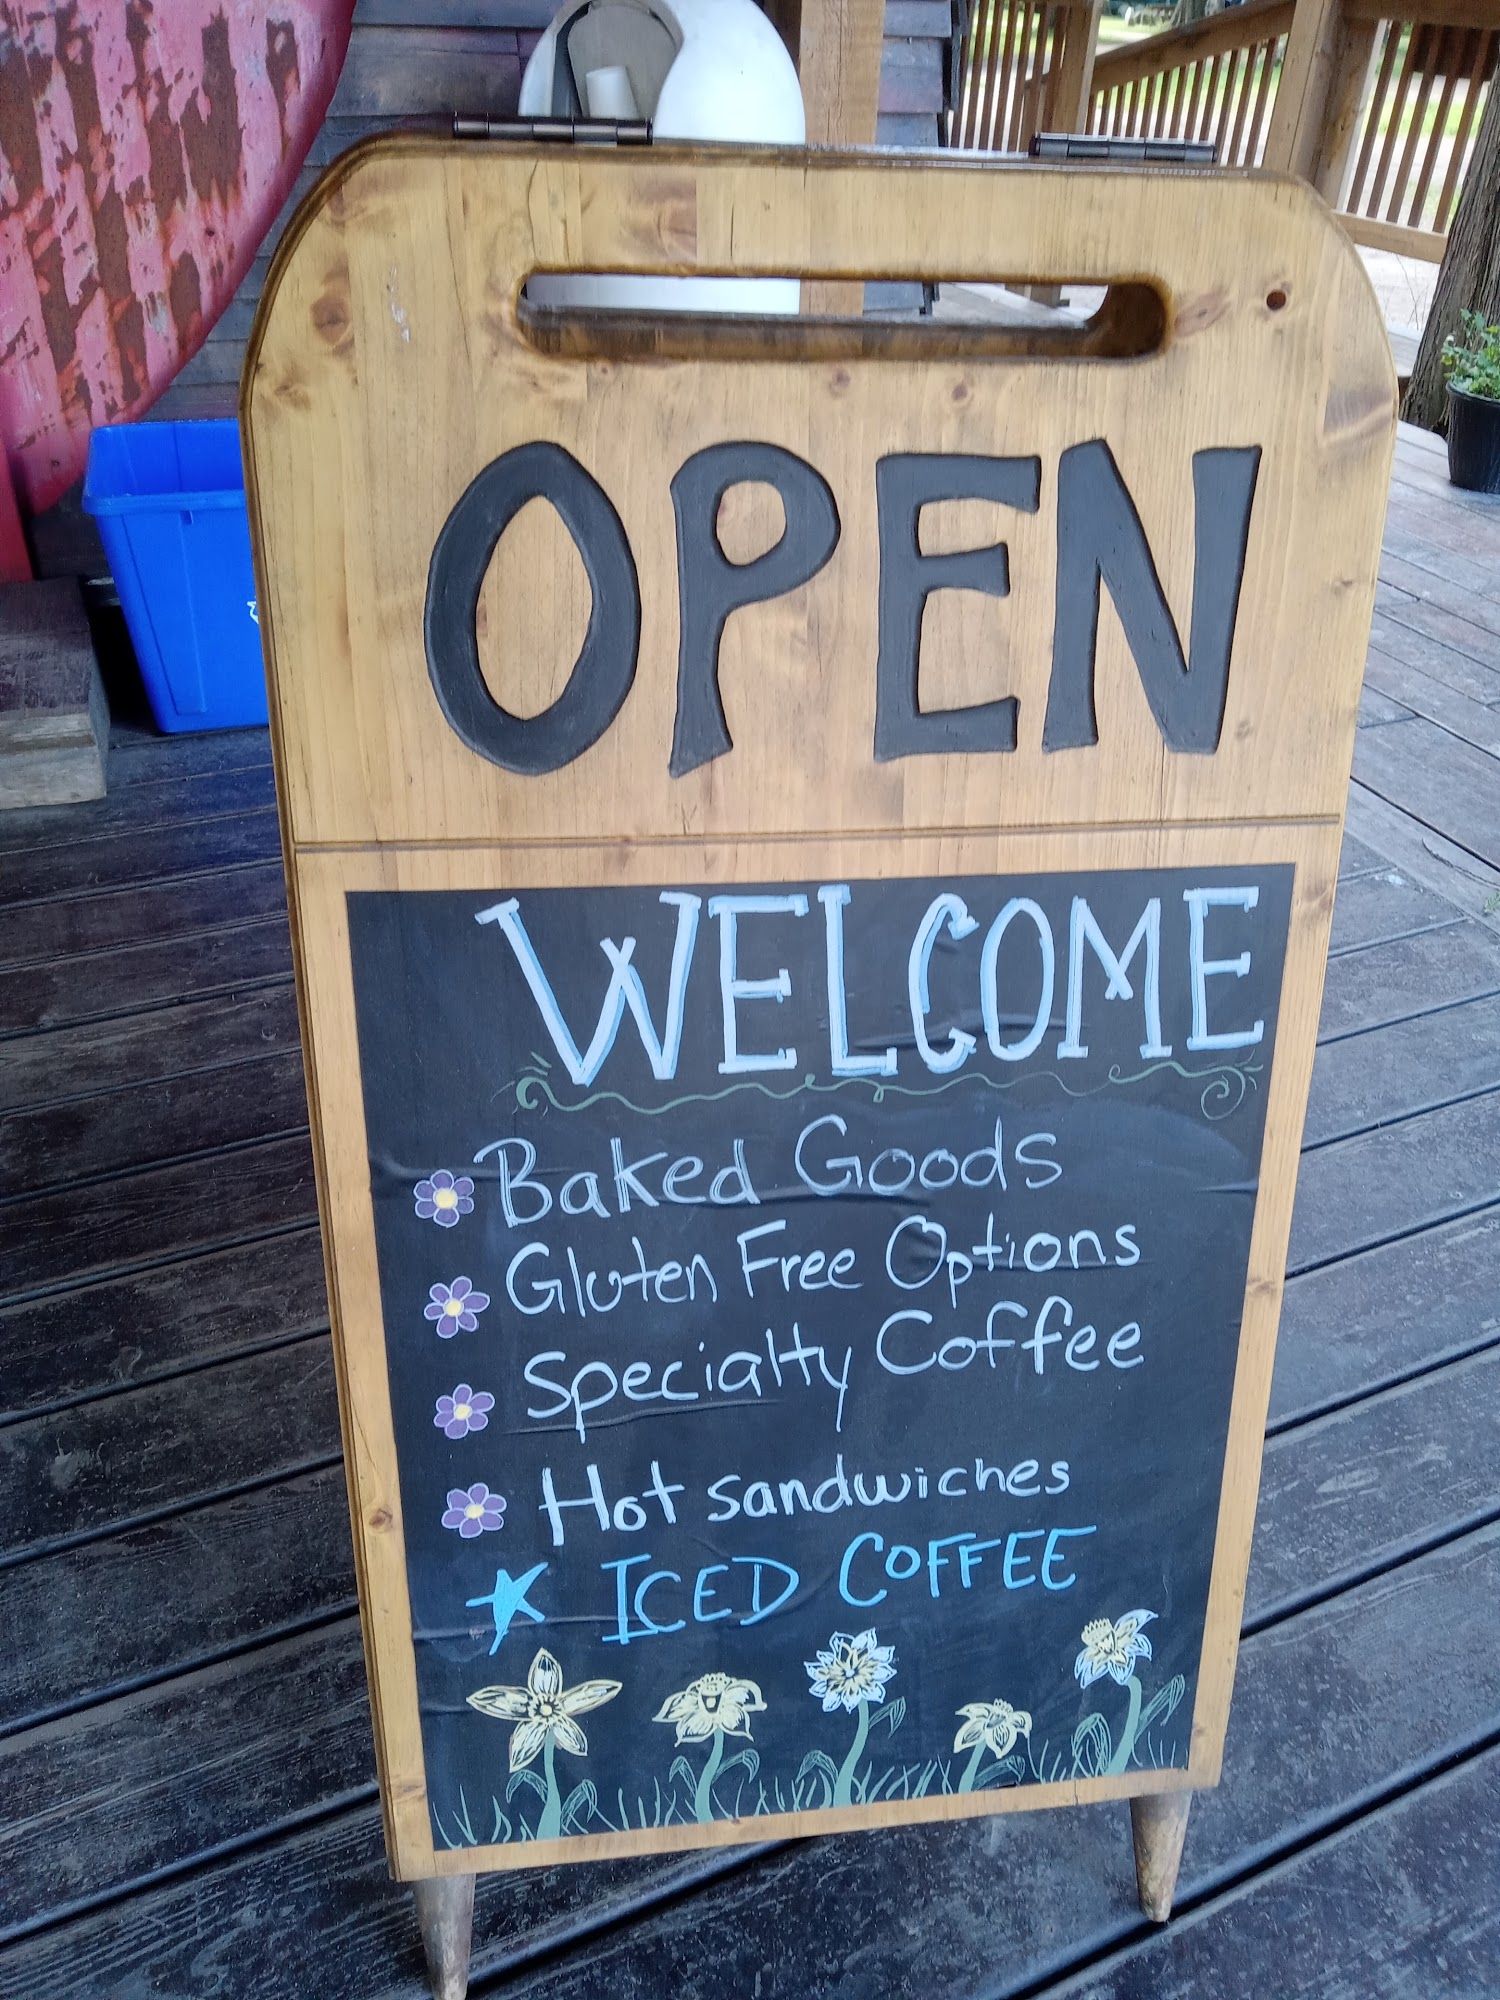 OPEN
WELCOME
Baked Goods
Gluten Free Options
Specialty Coffee
Hot sandwiches
ICED COFFEE